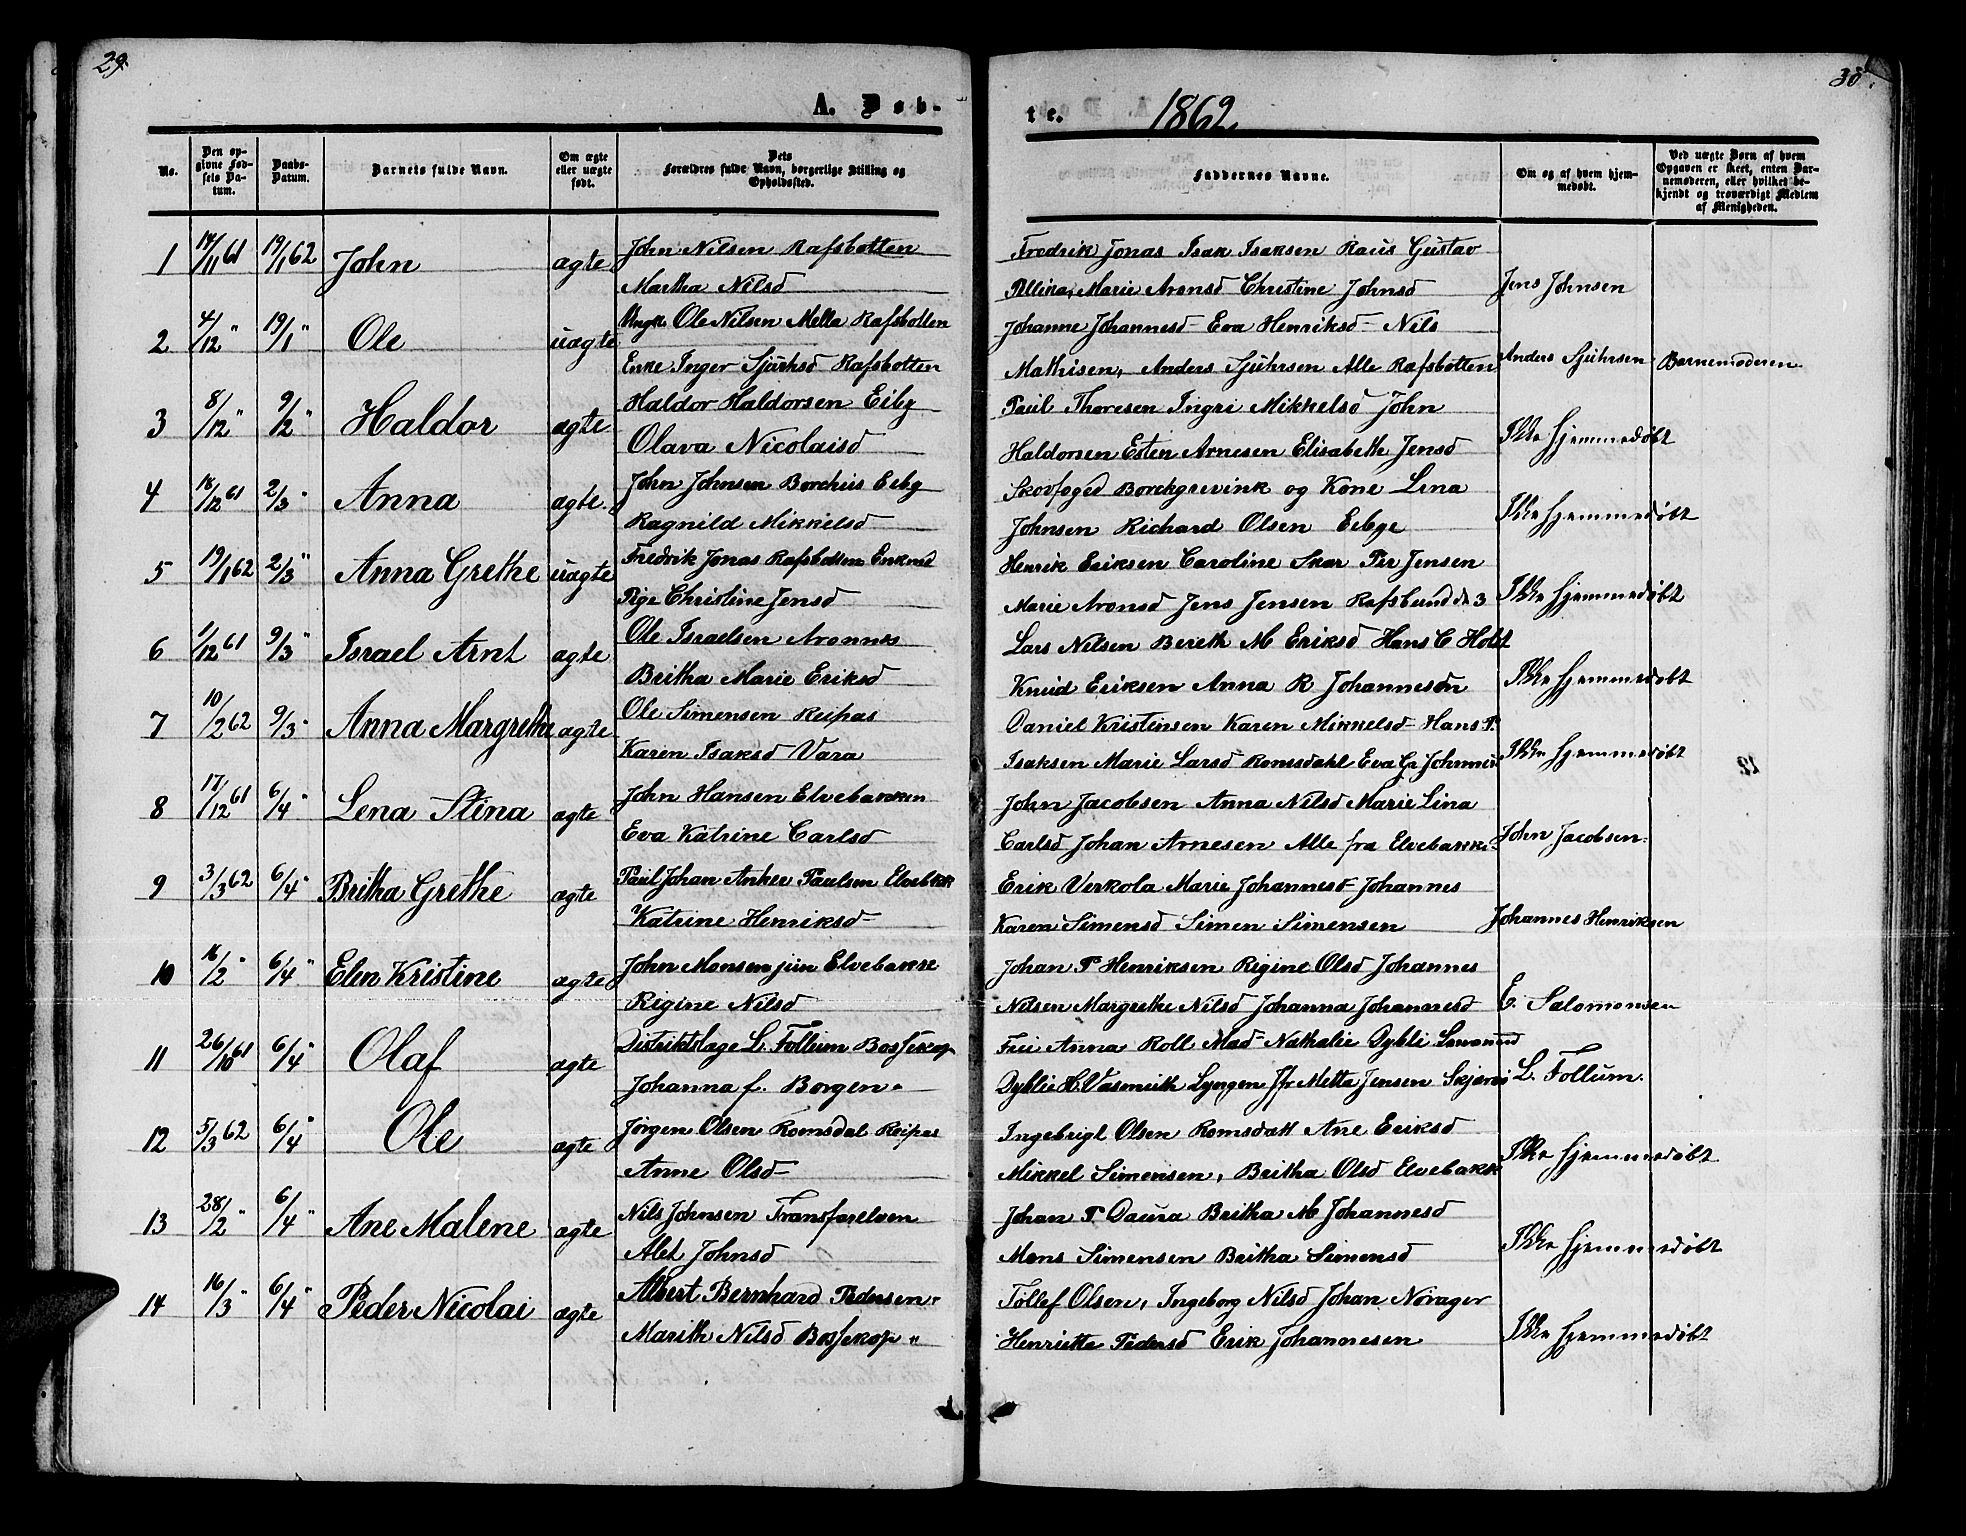 29.
30.
A. Døb-
te. 1862.
No.
Den opgivne Fødsels Datum.
Daabs-Datum.
Barnets fulde Navn.
Om ægte eller uægte født.
Dets Forældres fulde Navn, borgerlige Stilling og Opholdssted.
Faddernes Navne.
Om og af hvem hjemmedøbt.
Ved uægte Børn af hvem Opgaven er skeet, enten Barnemoderen, eller hvilket bekjendt og troværdigt Medlem af Menigheden.
1 14/11 61 19/1 62 John ægte John Nilsen Rafsbotten Fredrik Jonas Isak Isaksen Gustav
Martha Nilsd Marie Aronsd Christine Johnsd Jens Johnsen
2 4/12 " 19/1 " Ole uægte Ungk Ole Nilsen Mella Rafsbotten Johanne Johannesd Eva Henriksd Nils
Enke Inger Rafsbotten Mathisen, Anders Sjuhrsen Alle Rafsbotten Anders Sjuhrsen Barnemoderen
3 8/12 " 9/2 " Haldor ægte Haldor Haldorsen Eiby Paul Thoresen Ingri Mikkelsd John
Olava Nicolaisd Haldorsen Esten Arnesen Elisabethe Jensd Ikke hjemmedøbt
4 18/12 61 2/3 " Anna ægte. John Johnsen Borchius Eiby Skovfoged Borchgrevink og Kone Lina
Ragnild Mikkelsd Johnsen Richard Olsen Eibye Ikke hjemmedøbt
5 19/1 62 2/3 " Anna Grethe uægte Fredrik Jonas Rafsbotten Enkmd Henrik Eriksen Caroline Skar Per Jensen
Pige Christine Jensd Marie Aronsd Jens Jensen Rafsbund Ikke hjemmedøbt
6 1/12 61 9/3 " Israel Arnt ægte Ole Israelsen Aronnes Lars Nilsen Bereth M Eriksd Hans C Holst
Britha Marie Eriksd Knud Eriksen Anna R Johannesdn Ikke hjemmedøbt
7 10/2 62 9/3 " Anna Margrethe ægte Ole Simensen Reipas Daniel Kristensen Karen Mikkelsd Hans P.
Karen Isaksd Vara Isaksen Marie Larsd Romsdahl Eva Gr Ikke hjemmedøbt
8 17/12 61 6/4 " Lena Stina ægte John Hansen Elvebakken John Jacobsen Anna Nilsd Marie Lina
Eva Katrine Carlsd Carlsd Johan Arnesen Alle fra Elvebakke. John Jacobsen.
9 3/3 62 6/4 " Britha Grethe ægte Paul Johan Anker Paulsen Elvebkk Erik Verkola Marie Johannesd Johannes
Katrine Henriksd Karen Simensd Simen Simensen Johannes Henriksen
10 16/2 " 6/4 " Elen Kristine ægte John Monsen jun Elvebakke Johan P Henriksen Rigine Olsd Johannes
Rigine Nilsd Nilsen Margrethe Nilsd Johanna Johannesd E. Salomonsen
11 26/10 61 6/4 " Olaf ægte Distriktslæge L. Follum Bossekop Anna Roll Mad Nathalie Dybli
Johanna f. Borgen Dyblie Lyngen Jfr Metta Jensen Skjervø L. Follum.
12 5/3 62 6/4 " Ole ægte Jørgen Olsen Romsdal Reipas Ingebrigt Olsen Romsdatt Ane Eriksd
Anne Olsd Mikkel Simensen, Britha Olsd Elvebakk Ikke hjemmedøbt
13 28/2 " 6/4 " Ane Malene ægte Nils Johnsen Transfarelven Johan P Daura Britha M Johannesd
Alet Johnsd Mons Simensen Britha Simensd Ikke hjemmedøbt
14 16/3 " 6/4 " Peder Nicolai ægte Albert Bernhard Pedersen Tollef Olsen, Ingeborg Nilsd Johan Norager
Marith Nilsd Bossekop " Henriette Pedersd Erik Johannesen Ikke hjemmedøbt